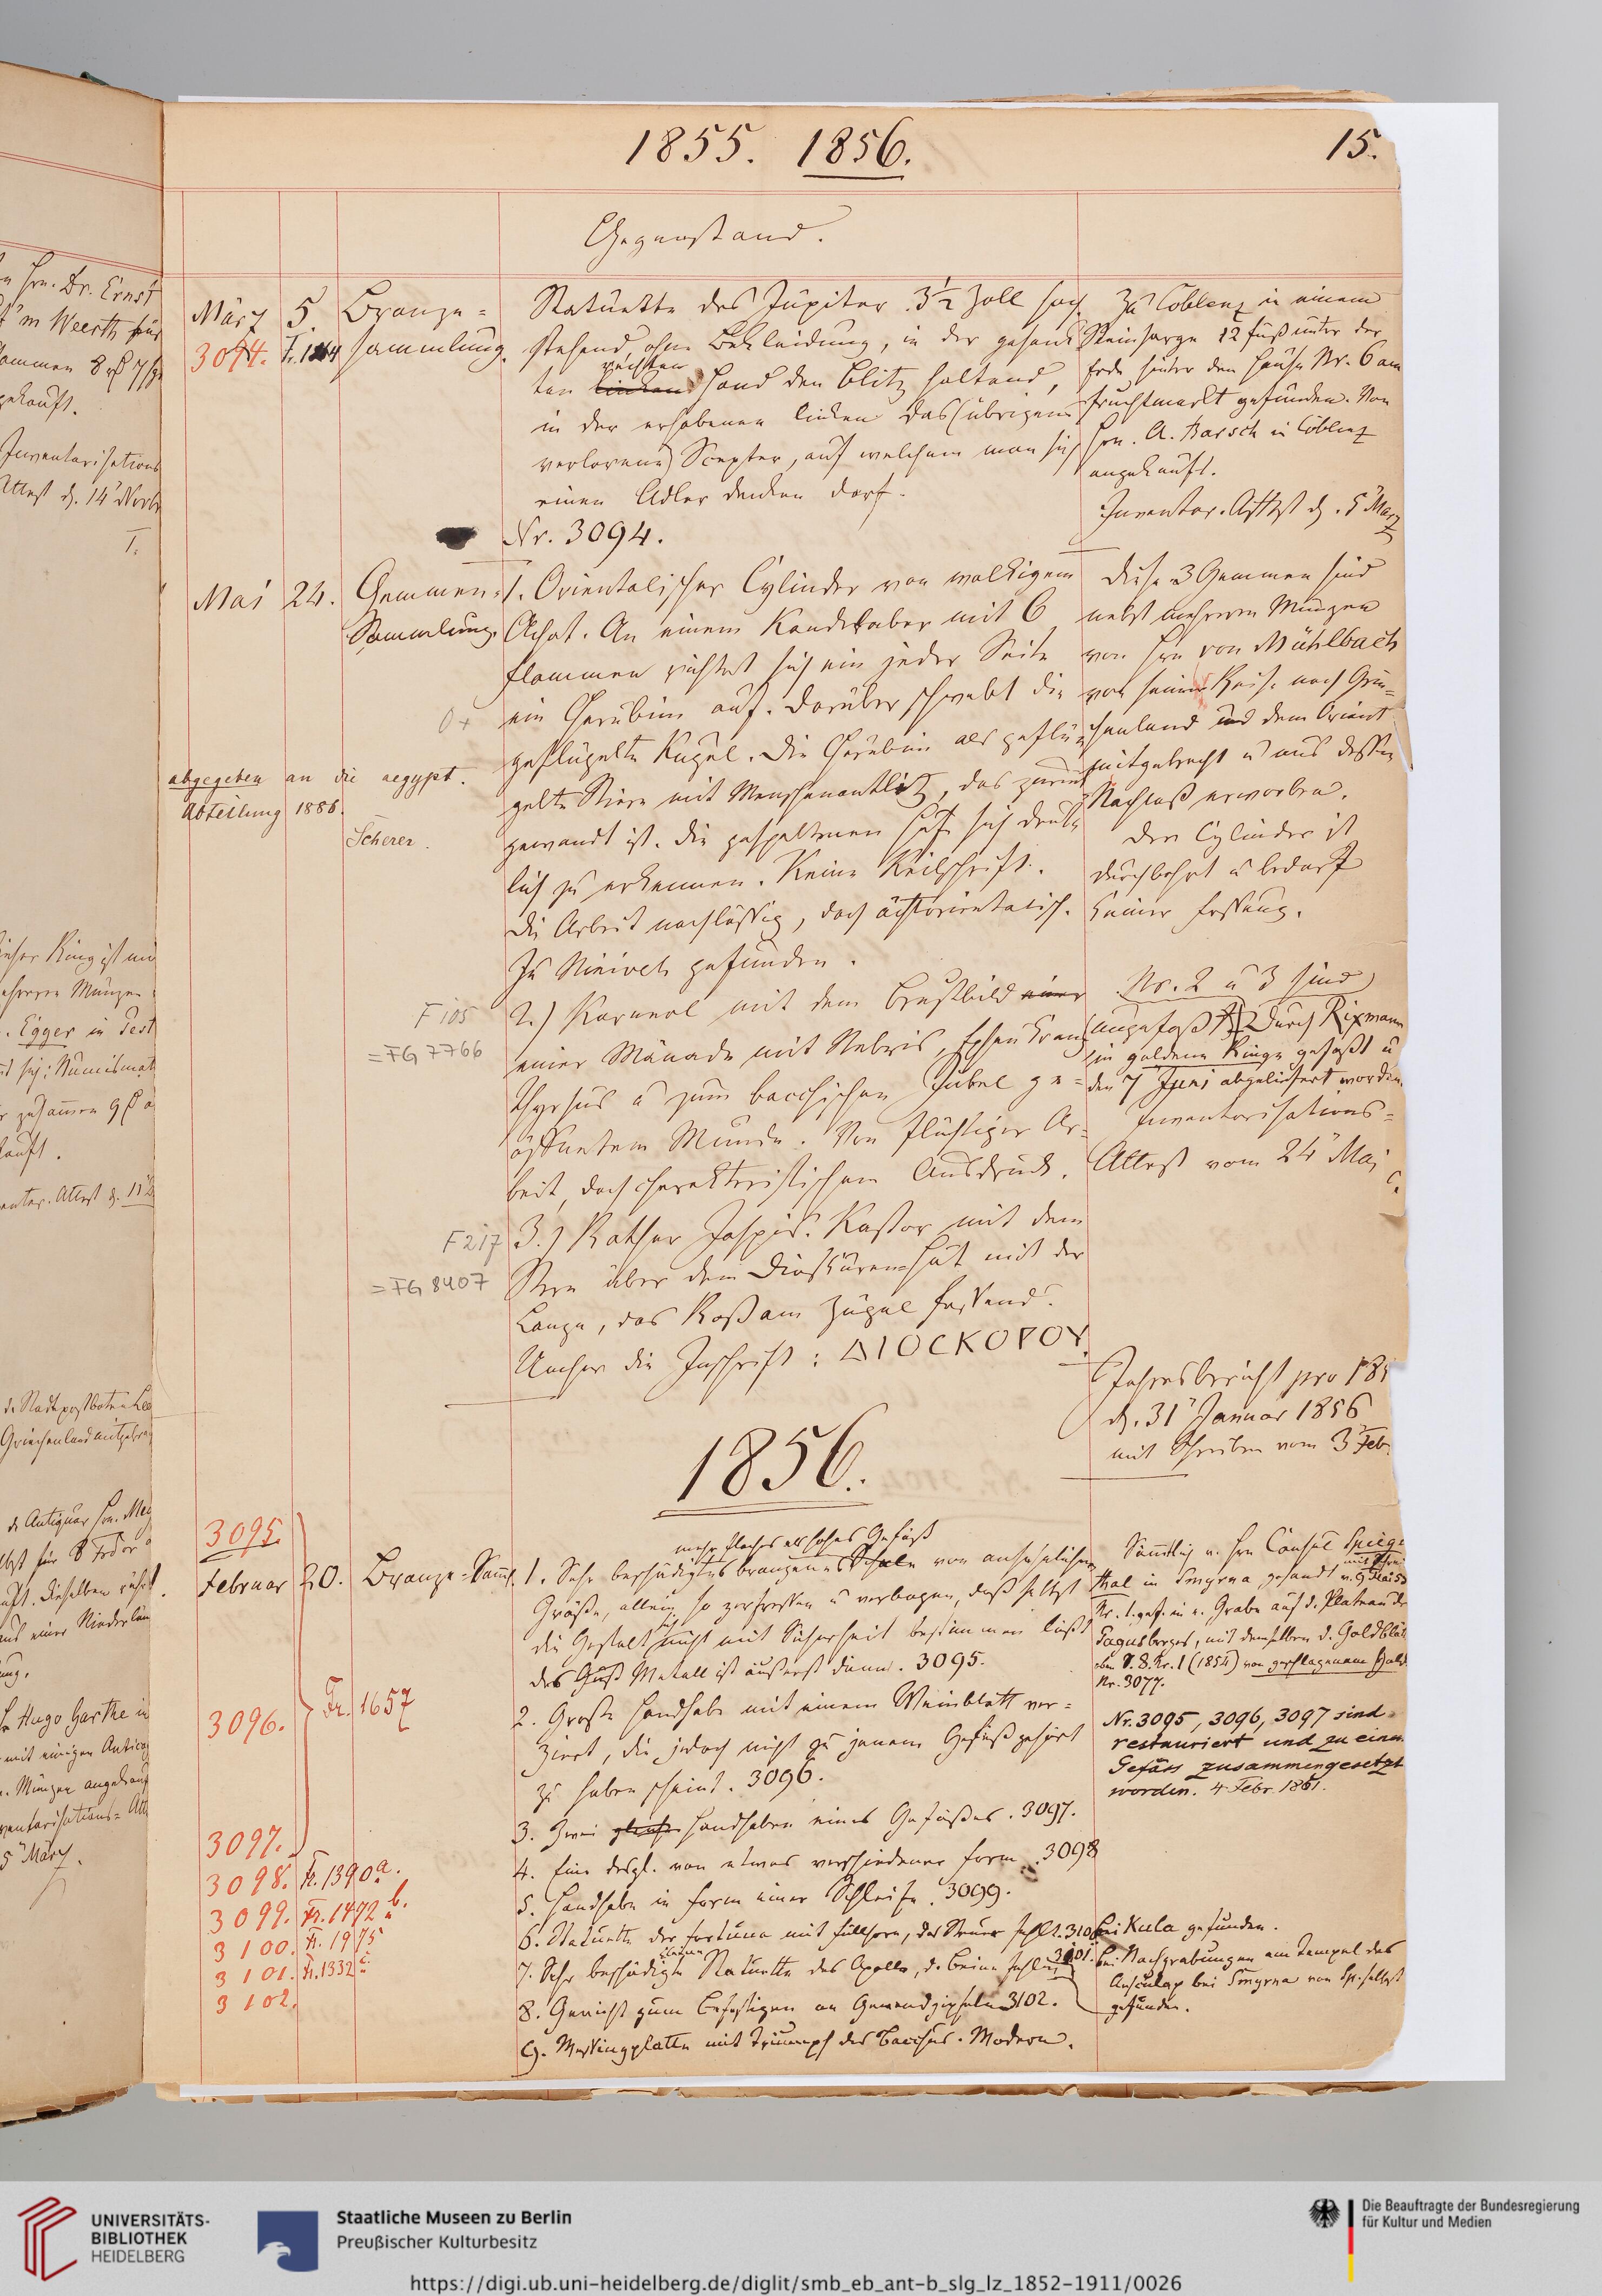 1855. 1856.
15.
Gegenstand.
März 5. Bronze-
3094. Fr. sammlung.
Statuette des Jupiter 3½ Zoll hoch
stehend, ohne Bekleidung, in der gesenk
ten linken rechten Hand den Blitz haltend,
in der erhobenen linken das (übrigens
verlorene) Scepter, auf welchem man sich
einen Adler denken darf.
Nr. 3094.
Zu Coblenz in einem
Steinsarge 12 Fuß unter der
Erde hinter dem Hause Nr. 6 am
Fruchtmarkt gefunden. Von
Hrn. A. Barsch in Coblenz
angekauft.
Inventar. Attest d. 5 März
Mai 24. Gemmen-
Sammlung.
1. Orientalischer Cylinder von wolkigem
Achat. An einem Kandelaber mit 6
Flammen richtet sich ein jeder Seite
ein Cherubim auf. Darüber schwebt die
geflügelte Kugel. Die Cherubim als geflü
gelte Stiere mit Menschenantlitz, das zurück
gewandt ist. Die gespaltenen Hufe sich deut
lich zu erkennen. Keine Keilschrift.
Die Arbeit nachlässig, doch ächtorientalisch.
Zu Niniveh gefunden.
0+
abgegeben an die aegypt.
Abteilung 1886.
Scherer.
Diese 3 Gemmen sind
nebst mehreren Münzen
von Hrn von Mühlbach
von seiner Reise nach Grie-
chenland und dem Orient
mitgebracht u aus dessen
Nachlaß erworben.
Der Cylinder ist
durchbohrt u bedarf
keiner Fassung.
F 105
= FG 7766
2.) Karneol mit dem Brustbild einer
einer Mänade mit Nebris, Epheukranz
Thyrsus u zum bacchischen Jubel ge-
öffnetem Munde. Von flüchtiger Ar-
beit, doch charakteristischem Ausdruck.
No. 2 u 3 sind
ungefaßt Durch Rixmann
in goldene Ringe gefaßt u
den 7 Juni abgeliefert worden.
Inventarisations-
Attest vom 24 Mai
c.
F 217
= FG 8407
3.) Rother Jaspis. Kastor mit dem
Stern über dem Dioskurenhut mit der
Lanze, das Roß am Zügel fassend.
Umher die Inschrift: ΔΙΟϹΚΟΡΟΥ.
Jahresbericht pro 185
d. 31 Januar 1856
mit Schreiben vom 3 Feb.
1856.
3095.
Februar 20. Bronze-Samml.
mehr flaches als hohes Gefäß
1. Sehr beschädigtes bronzenes Schale von ansehnlicher
Größe, allein so zerfressen u verbogen, daß selbst
die Gestalt sich nicht mit Sicherheit bestimmen läßt
das Guß Metall ist äußerst dünn. 3095.
3096. Fr. 1657
2. Große Handhabe mit einem Weinblatt ver-
ziert, die jedoch nicht zu jenem Gefäß gehört
zu haben scheint. 3096.
3097.
3. Zwei gleiche Handhaben eines Gefäßes. 3097.
3098. Fr. 1390 a.
4. Eine desgl. von etwas verschiedener Form. 3098
3099. Fr. 1472 b.
5. Handhabe in Form einer Schleife. 3099.
3100. Fr. 1975
6. Statuette der Fortuna mit Füllhorn, das Steuer fehlt. 3100
3101. Fr. 1332 c.
7. Sehr beschädigte kleine Statuette des Apollo, d. Beine fehlen 3101.
3102.
8. Gewicht zum Befestigen an Gewandzipfeln 3102.
9. Messingplatte mit Triumph des Bacchus. Modern.
Sämtlich v. Hrn Consul Spiegel
thal in Smyrna gesandt
Nr. 1. gef. in e. Grabe auf d. Plateau des
Pagusberges, mit demselben d. Goldblät
oben V. 8. Nr. 1 (1854) von geschlagenem Golde
Nr. 3077.
Nr. 3095, 3096, 3097 sind
restauriert und zu einem
Gefäss zusammengesetzt
worden. 4 Febr. 1861.
Bei Kula gefunden.
bei Nachgrabungen am Tempel des
Aesculap bei Smyrna von Sp. selbst
gefunden.
n Hrn. Dr. Ernst
'm Weerth für
gekauft.
Inventarisations
Attest d. 14 Novbr
I.
dieser Ring ist mit
mehreren Münzen
. Egger in Pest
kauft.
d. Stadtpostboten
Griechenland mitgebra
d. Antiquar Hrn. Mey
Dieselben rührt.
aus einer Niederlän
ung.
Hugo Garthe in
mit einigen Antica
. Münzen angekauf
ventarisations-Att
5 März.
UNIVERSITÄTS-
BIBLIOTHEK
HEIDELBERG
Staatliche Museen zu Berlin
Preußischer Kulturbesitz
Die Beauftragte der Bundesregierung
für Kultur und Medien
https://digi.ub.uni-heidelberg.de/diglit/smb_eb_ant-b_slg_lz_1852-1911/0026